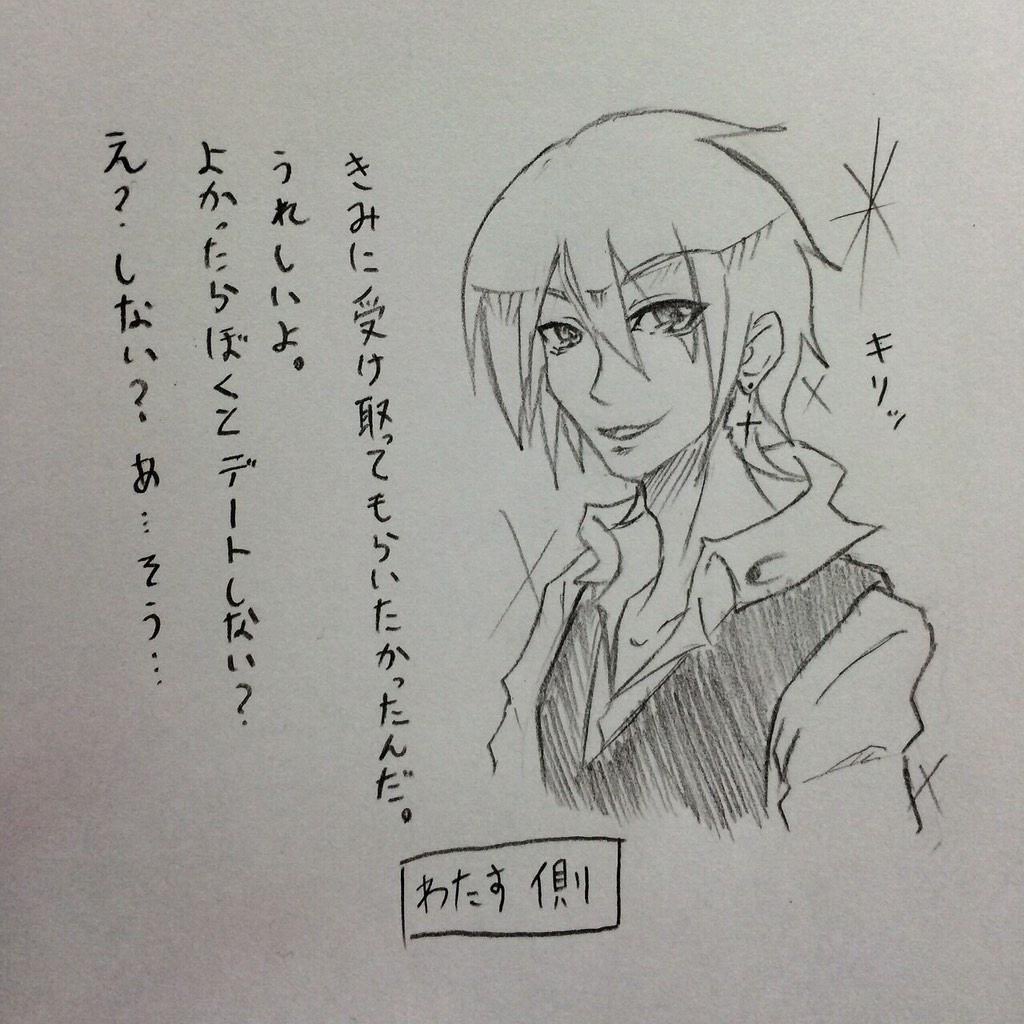 きみに受け取ってもらいたかったんだ。
うれしいよ。
よかったらぼくとデートしない?
え?しない?あ…そう…
キリッ
わたす側